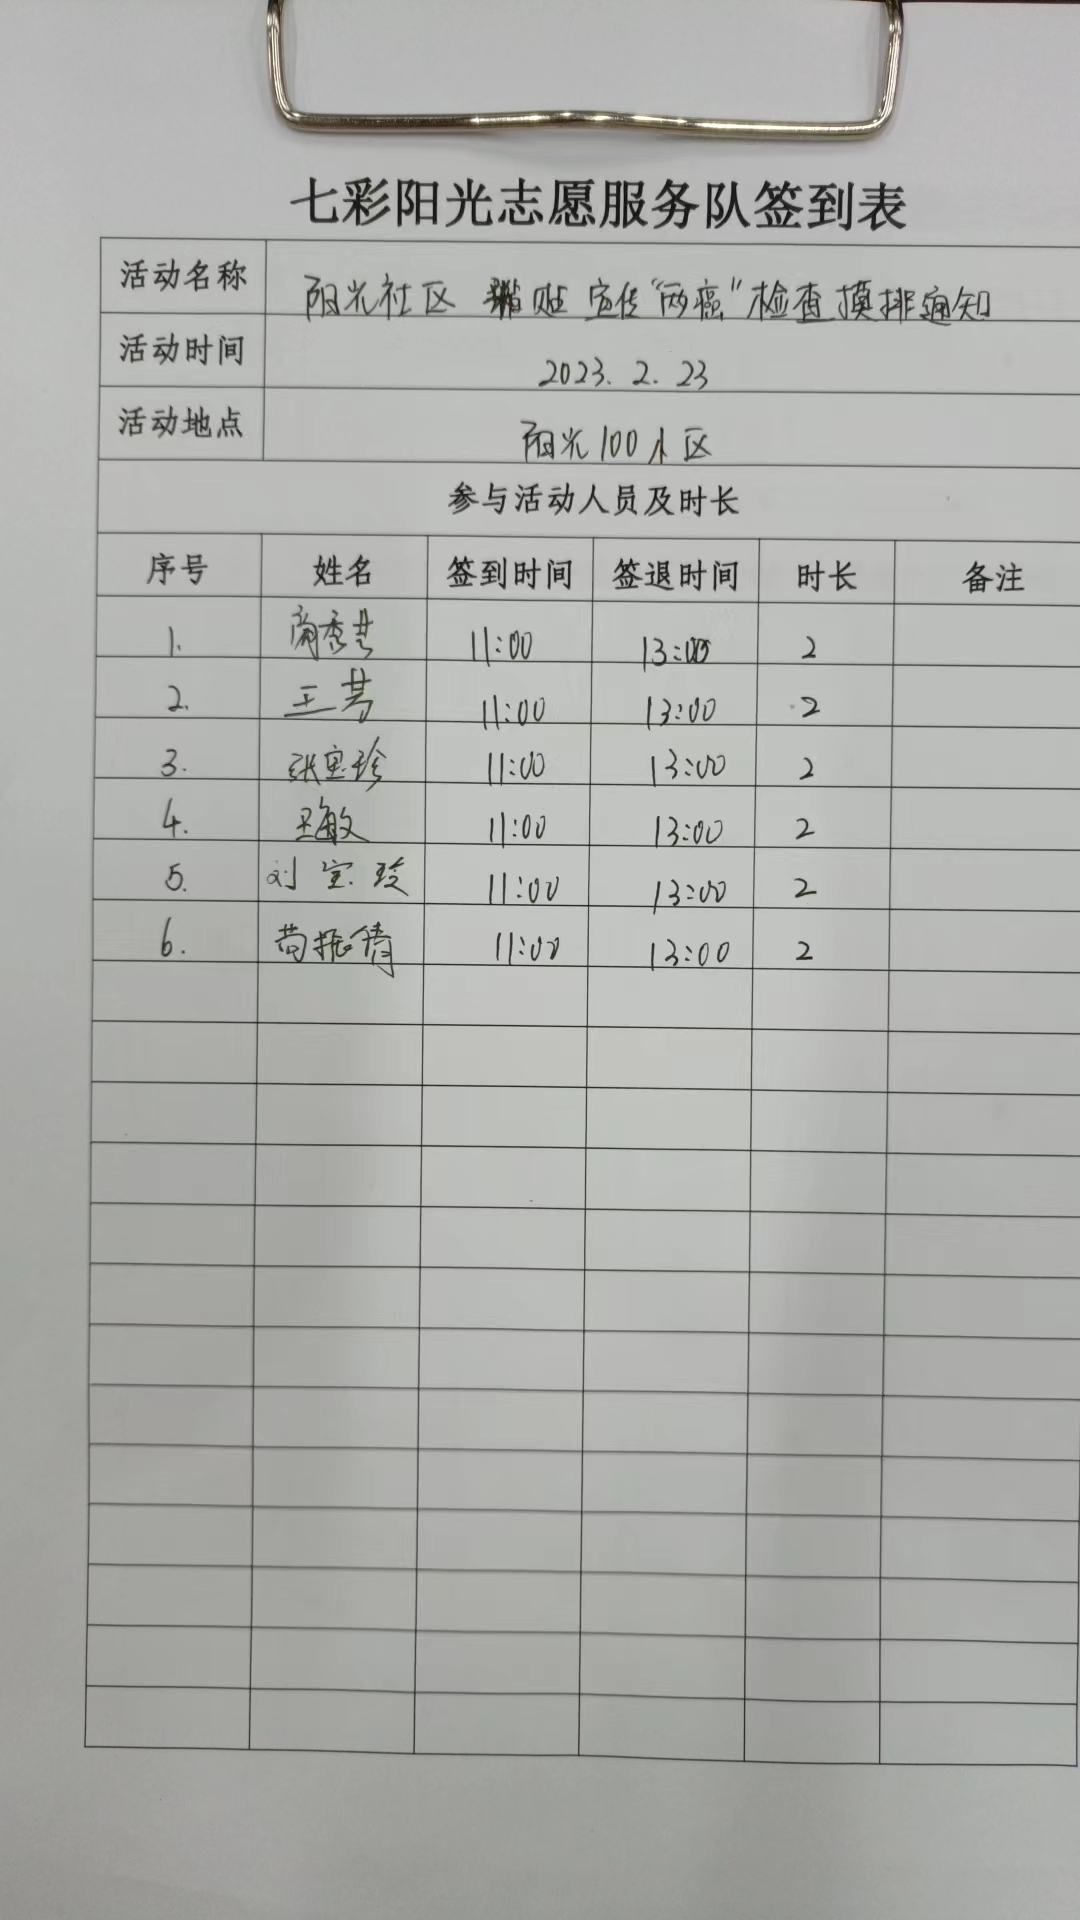 七彩阳光志愿服务队签到表
活动名称 阳光社区 粘贴宣传“两癌”检查摸排通知
活动时间 2023.2.23
活动地点 阳光100小区
参与活动人员及时长
序号 姓名 签到时间 签退时间 时长 备注
1. 11:00 13:00 2
2. 王芳 11:00 13:00 2
3. 张宝珍 11:00 13:00 2
4. 王敏 11:00 13:00 2
5. 刘宝玲 11:00 13:00 2
6. 苟振倩 11:00 13:00 2